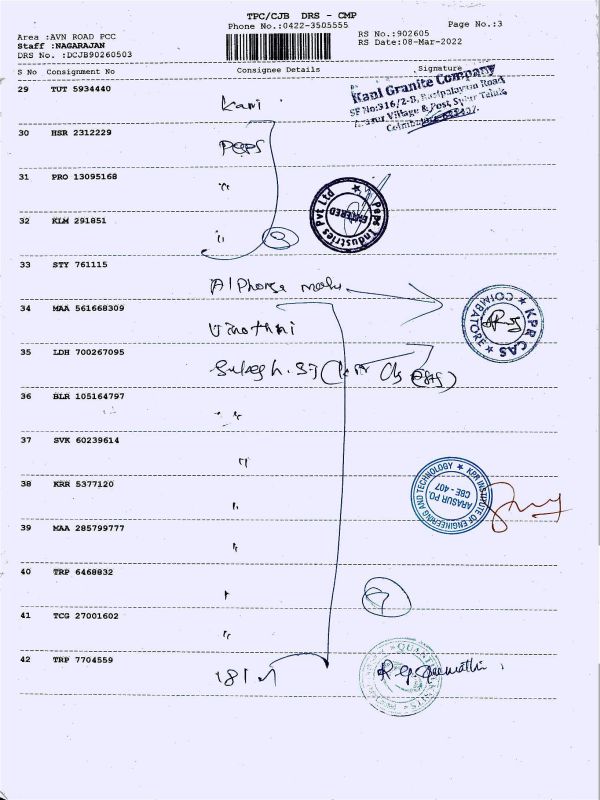 TPC/CJB DRS - CMP
Phone No.:0422-3505555
Page No.:3
Area :AVN ROAD PCC
Staff :NAGARAJAN
DRS No. :DCJB90260503
RS No.:902605
RS Date:08-Mar-2022
S No Consignment No Consignee Details Signature
29 TUT 5934440
Kani
Kani Granite Company
SF No:316/2-B, Road
Arasur Village & Post, Sulur Taluk,
Coimbatore-641407.
30 HSR 2312229
PEPS
31 PRO 13095168
"
Peps Industries Pvt Ltd
ENTERED
32 KLM 291851
"
3
33 STY 761115
Alphonse
34 MAA 561668309
KPR CAS
COIMBATORE
35 LDH 700267095
36 BLR 105164797
"
37 SVK 60239614
"
38 KRR 5377120
"
KPR INSTITUTE OF ENGINEERING AND TECHNOLOGY
ARASUR PO.
CBE - 407
39 MAA 285799777
"
40 TRP 6468832
"
41 TCG 27001602
"
42 TRP 7704559